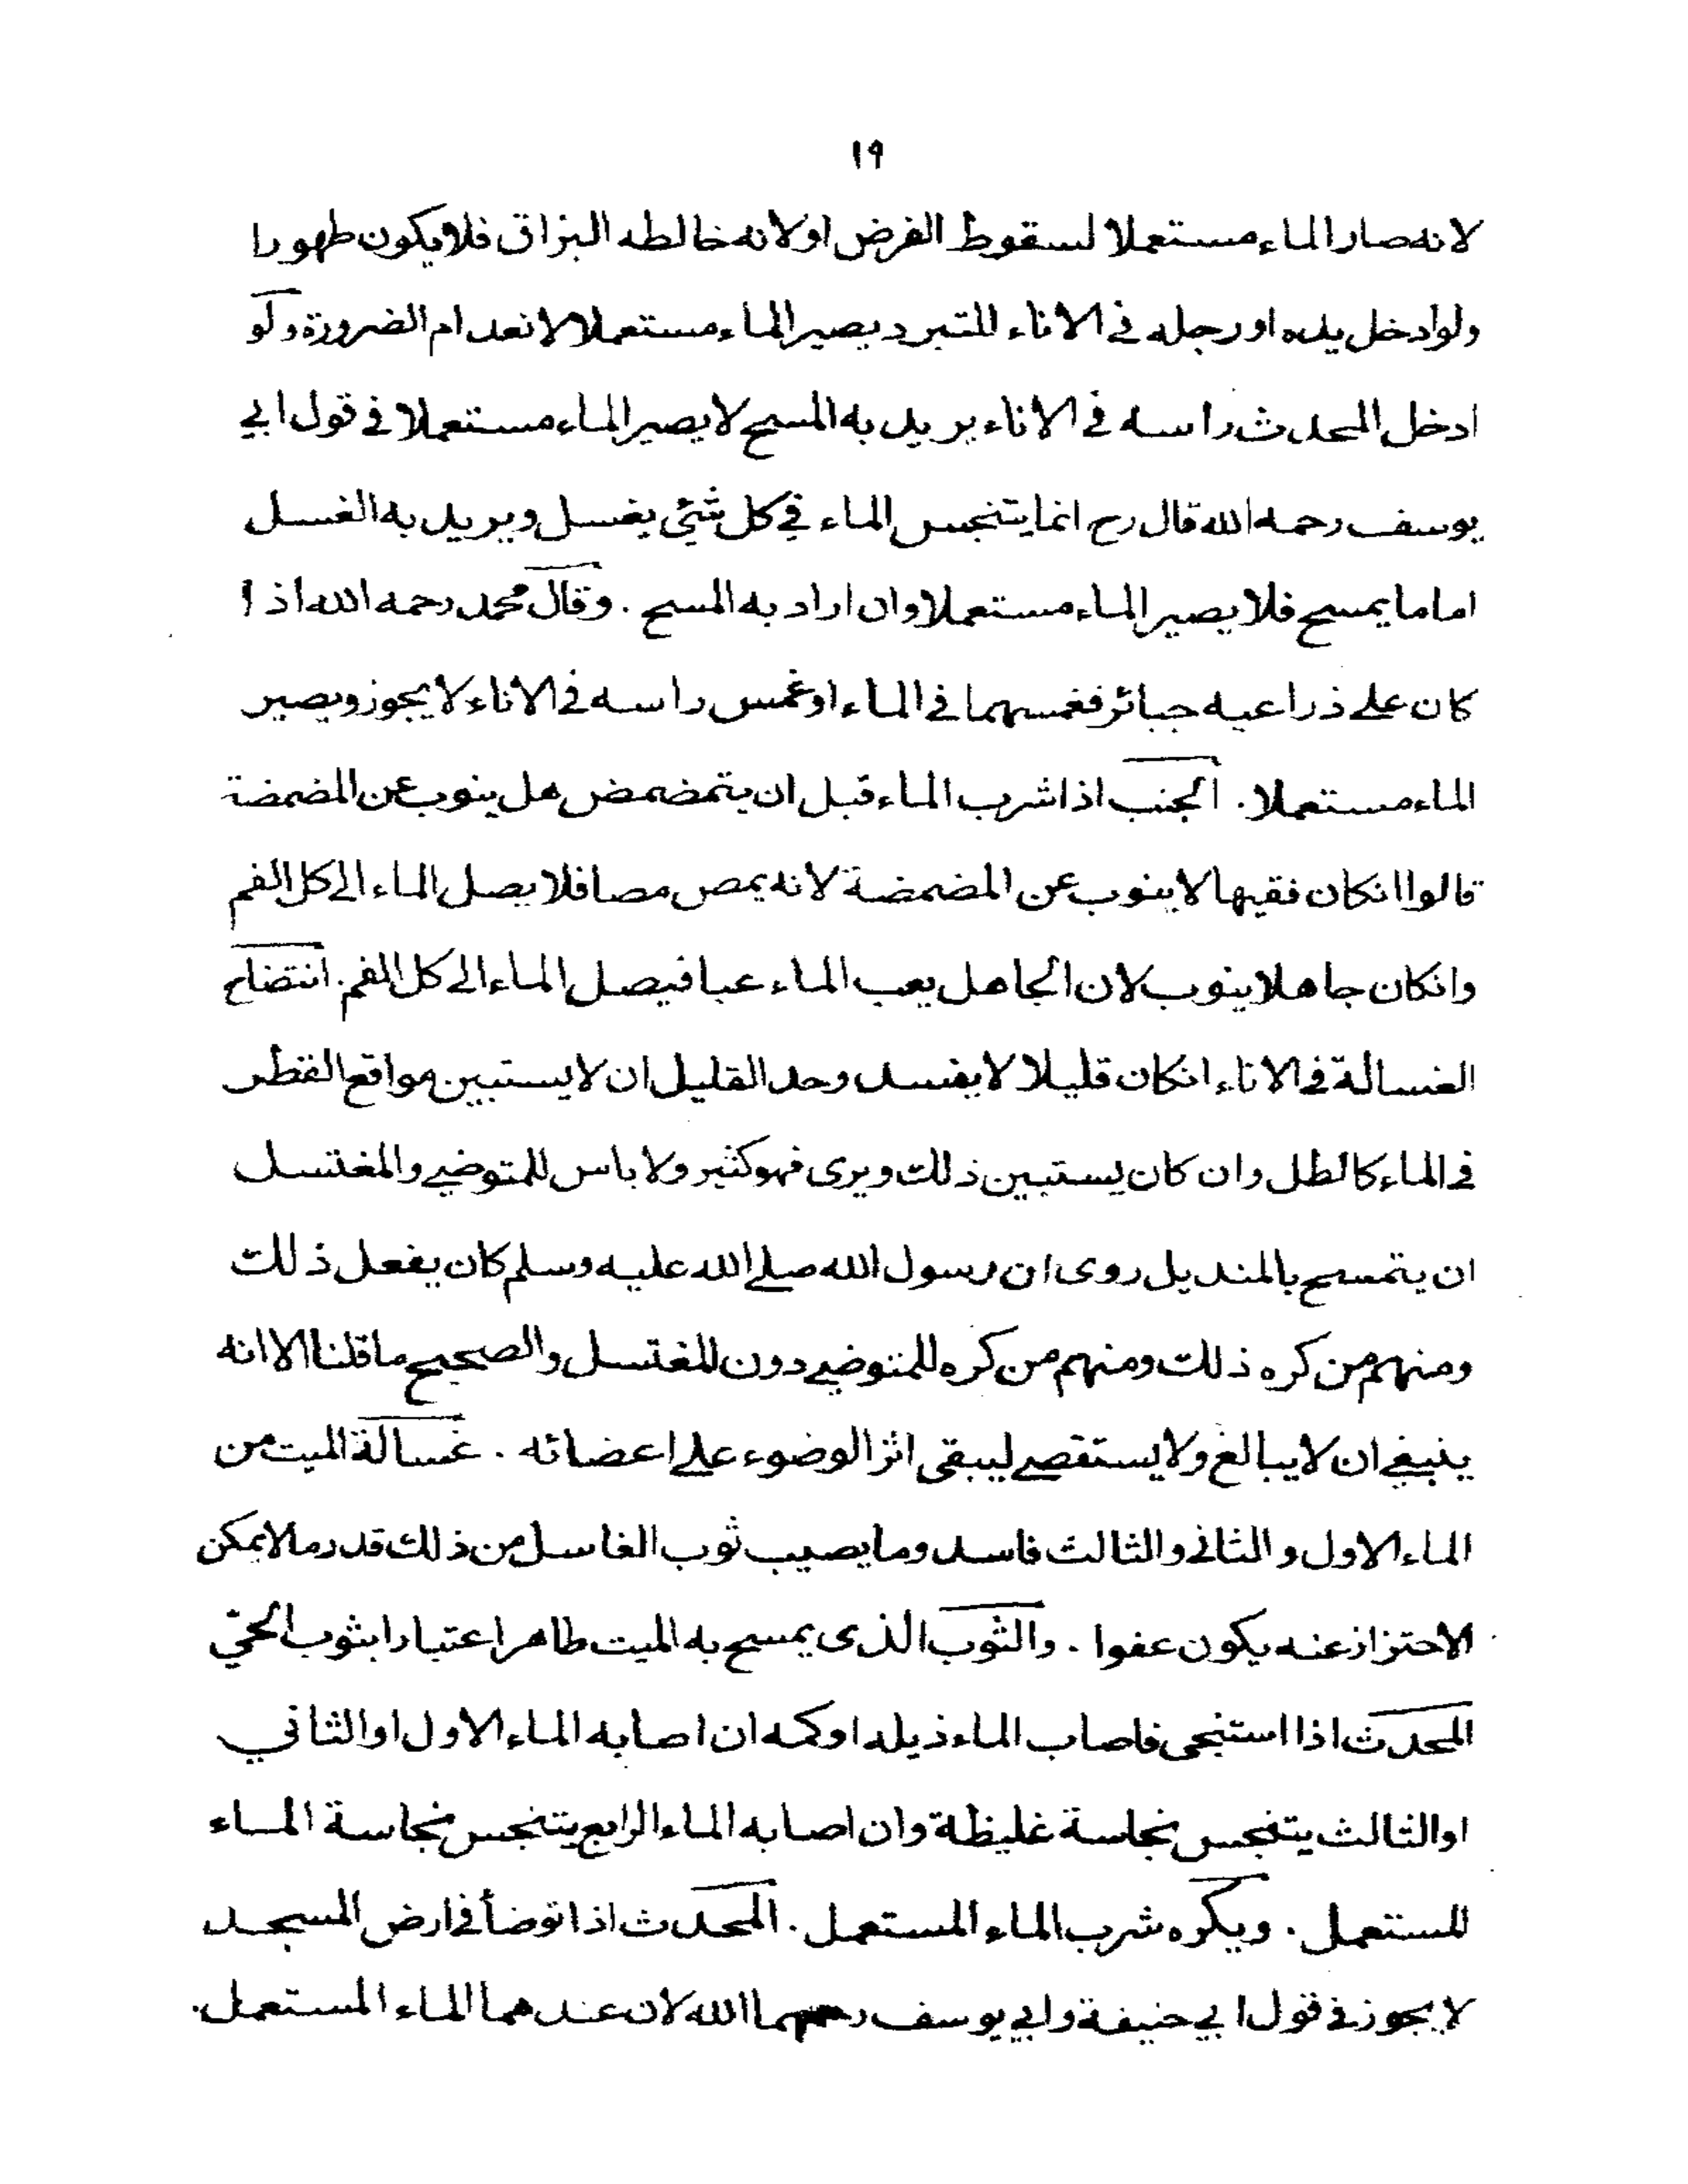 ١٩
لانه صار الماء مستعملا لسقوط الفرض او لانه خالطه البزاق فلا يكون طهورا
ولو ادخل يده او رجله في الاناء للتبرد يصير الماء مستعملا لانعدام الضرورة ولو
ادخل المحدث راسه في الاناء يريد به المسح لا يصير الماء مستعملا في قول ابي
يوسف رحمه الله قال رح انما يتنجس الماء في كل شئي يغسل ويريد به الغسل
اما ما يمسح فلا يصير الماء مستعملا وان اراد به المسح . وقال محمد رحمه الله اذا
كان على ذراعيه جبائر فغمسهما في الماء او غمس راسه في الاناء لا يجوز ويصير
الماء مستعملا . الجنب اذا شرب الماء قبل ان يتمضمض هل ينوب عن المضمضة
قالوا انكان فقيها لا ينوب عن المضمضة لانه يمص مصا فلا يصل الماء الى كل الفم
وانكان جاهلا ينوب لان الجاهل يعب الماء عبا فيصل الماء الى كل الفم . انتضاح
الغسالة في الاناء انكان قليلا لا يفسد وحد القليل ان لا يستبين مواقع القطر
في الماء كالطل وان كان يستبين ذلك ويرى فهو كثير ولا باس للمتوضي والمغتسل
ان يتمسح بالمنديل روى ان رسول الله صلى الله عليه وسلم كان يفعل ذلك
ومنهم من كره ذلك ومنهم من كره للمتوضي دون للمغتسل والصحيح ما قلنا الا انه
ينبغي ان لا يبالغ ولا يستقصي ليبقى اثر الوضوء على اعضائه . غسالة الميت من
الماء الاول و الثاني والثالث فاسد وما يصيب ثوب الغاسل من ذلك قدر ما لا يمكن
الاحتراز عنه يكون عفوا . والثوب الذى يمسح به الميت طاهر اعتبارا بثوب الحيّ
المحدث اذا استنجى فاصاب الماء ذيله او كمه ان اصابه الماء الاول او الثاني
او الثالث يتنجس نجاسة غليظة وان اصابه الماء الرابع يتنجس نجاسة الماء
المستعمل . ويكره شرب الماء المستعمل . المحدث اذا توضأ في ارض المسجد
لا يجوز في قول ابي حنيفة وابي يوسف رحمهما الله لان عندهما الماء المستعمل.